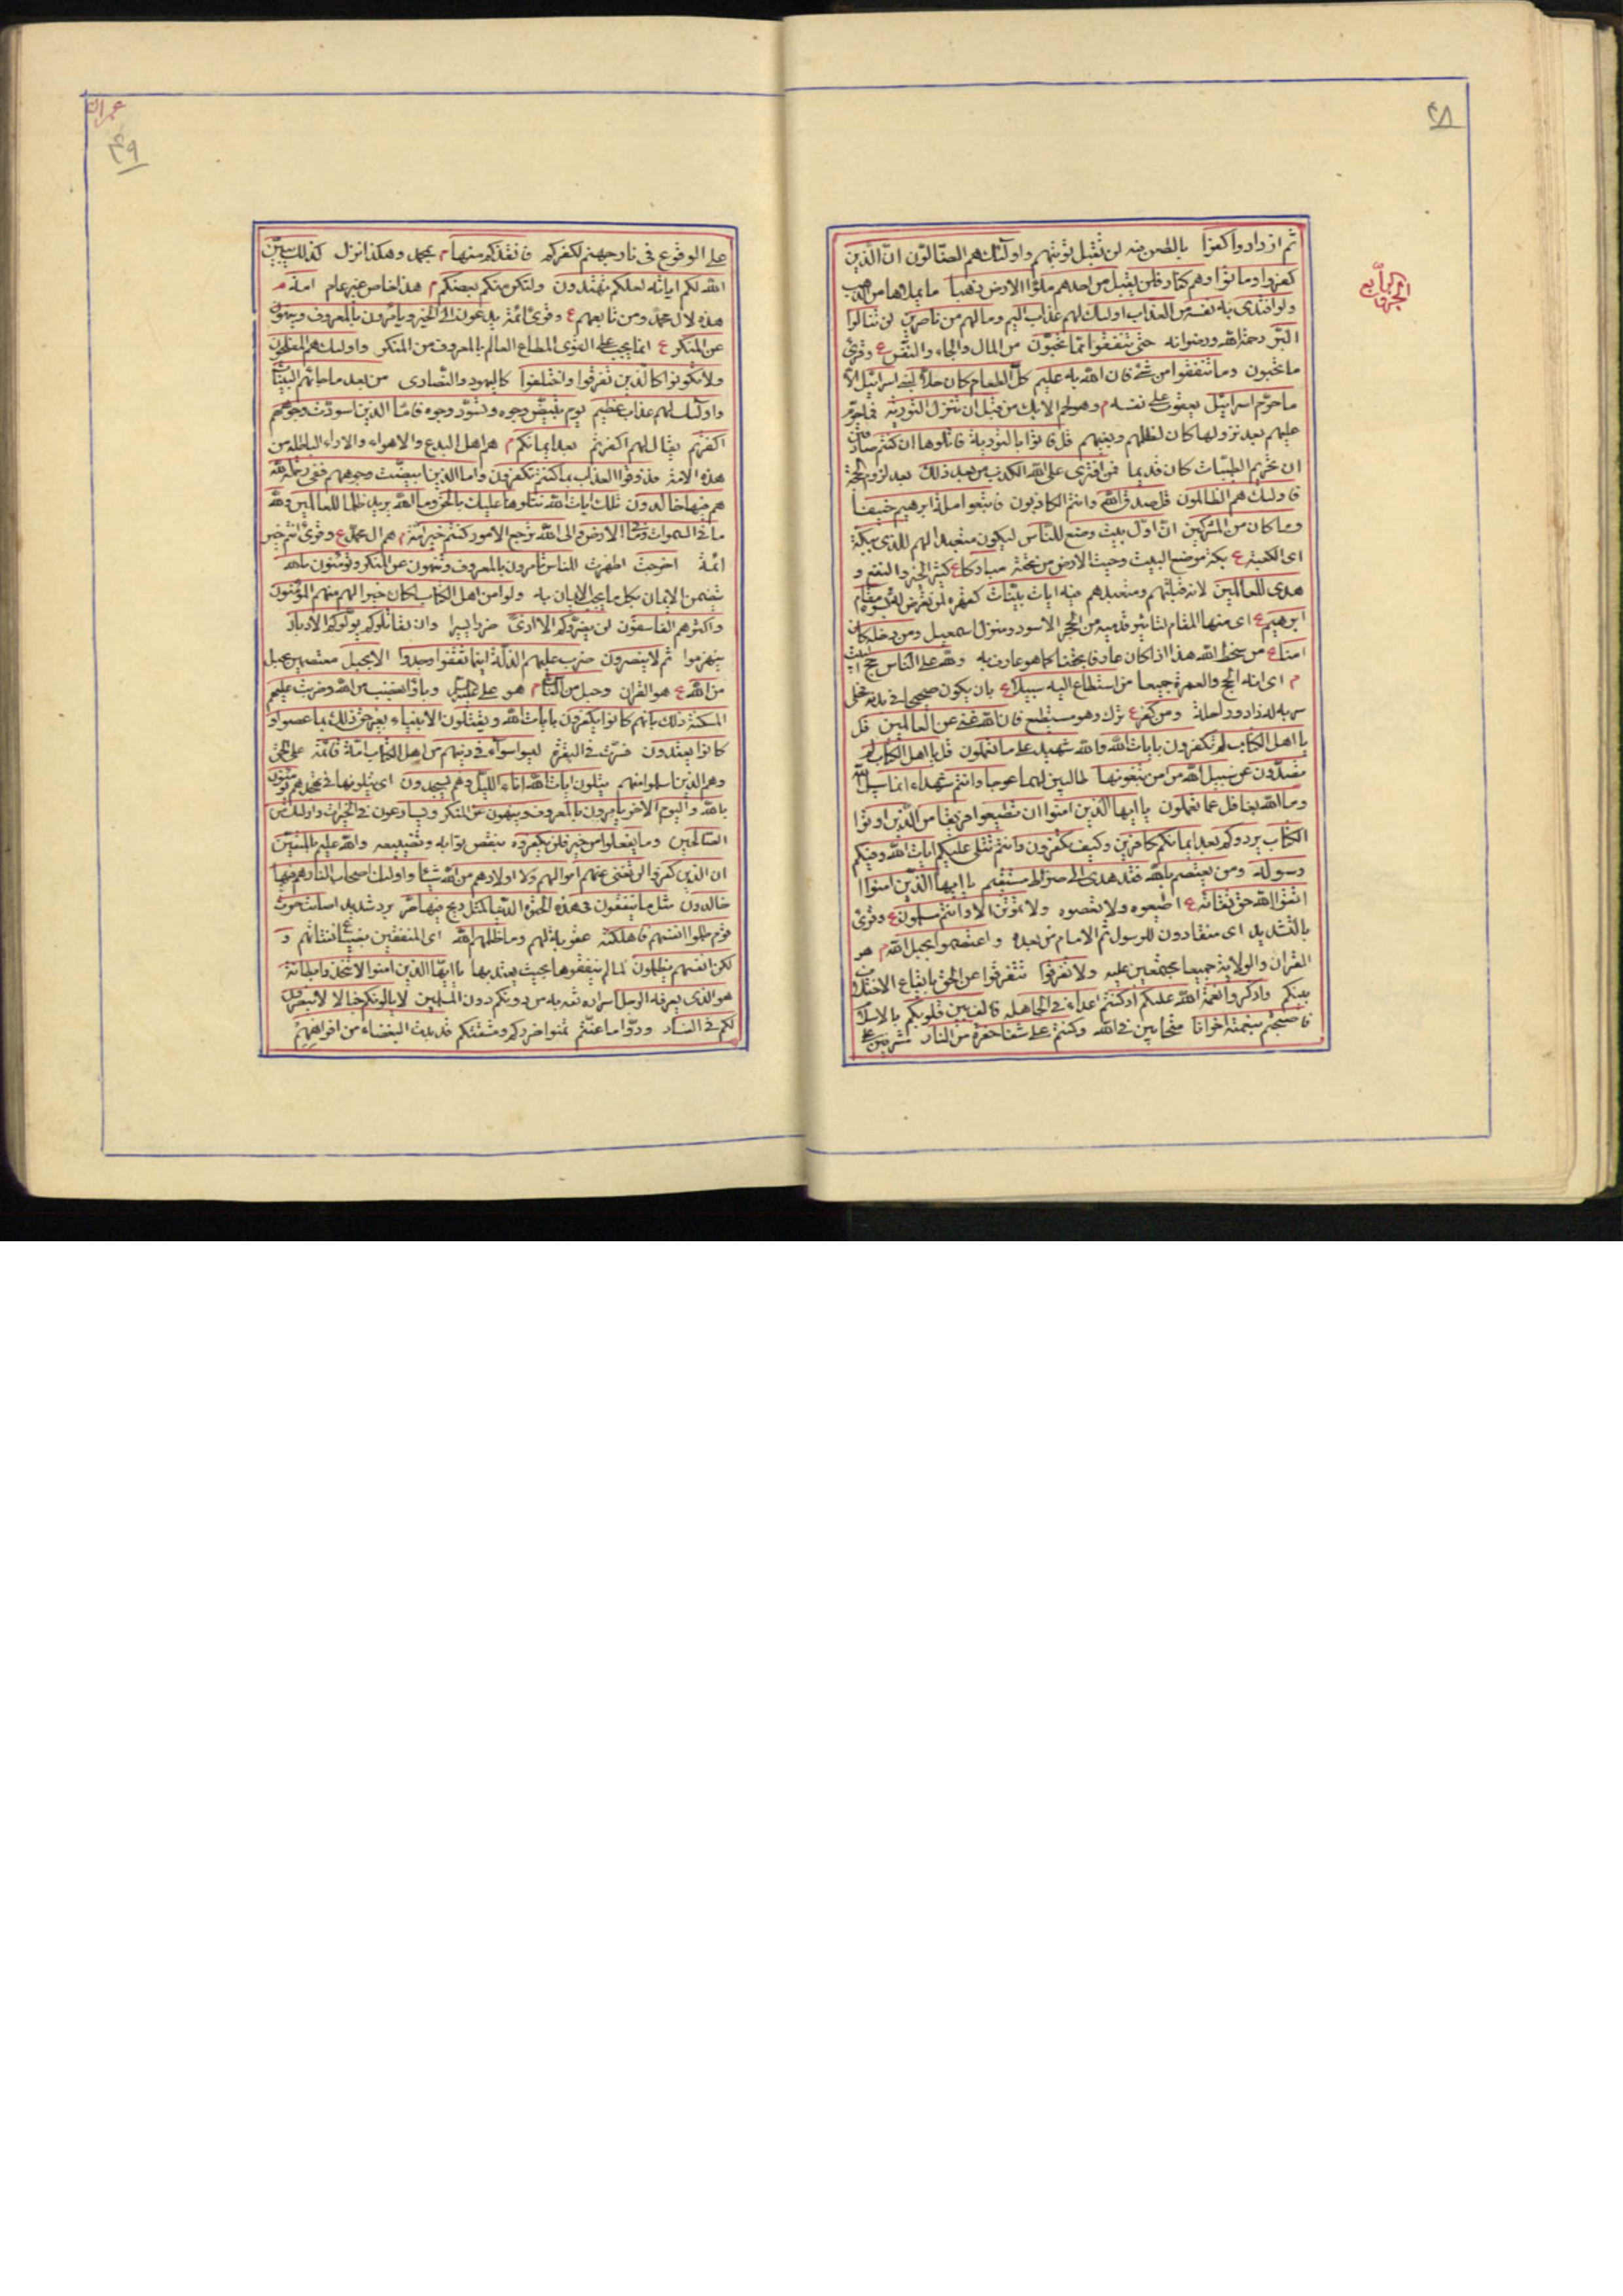 ٤٨
الجزء الرابع
ثم ازدادوا كفرا بالطعن فيه لن تقبل توبتهم واولئك هم الضالون ان الذين
كفروا وماتوا وهم كفار فلن يقبل من احدهم ملؤا الارض ذهبا ما يملاها من الذهب
ولو افتدى به نفسه من العذاب اولئك لهم عذاب اليم وما لهم من ناصرين لن تنالوا
البر رحمة الله ورضوانه حتى تنفقوا مما تحبون من المال والجاه والنفس ع وقرئ
ما تحبون وما تنفقوا من شئ فان الله به عليم كل الطعام كان حلا لبنى اسرائيل الا
ما حرم اسرائيل يعقوب على نفسه م وهو لحم الابل من قبل ان تنزل التورية
عليهم بعد نزولها كان لظلمهم وبغيهم قل فاتوا بالتورية فاتلوها ان كنتم صادقين
ان تحريم الطيبات كان قديما فمن افترى على الله الكذب من بعد ذلك بعد لزوم الحجة
فاولئك هم الظالمون قل صدق الله وانتم الكاذبون فاتبعوا ملة ابرهيم حنيفا
وما كان من المشركين ان اول بيت وضع للناس ليكون متعبدا لهم للذى ببكة
اى الكعبة ع بكة موضع البيت وحيت الارض من تحته مباركا ع كثير الخير والنفع و
هدى للعالمين لانه قبلتهم ومتعبدهم فيه ايات بينات كقهره لمن تعرض له بسوء مقام
ابرهيم ع اى منها المقام لتاثير قدميه من الحجر الاسود ومنزل اسمعيل ومن دخله كان
امنا ع من سخط الله هذا اذا كان عارفا بحقنا كما هو عارف به ولله على الناس حج البيت
م اى انه الحج والعمرة جميعا من استطاع اليه سبيلا ع بان يكون صحيحا فى بدنه مخلى
سربه له زاد وراحلة ومن كفر ع ترك وهو مستطيع فان الله غنى عن العالمين قل
يا اهل الكتاب لم تكفرون بايات الله والله شهيد على ما تعملون قل يا اهل الكتاب لم
تصدون عن سبيل الله من امن تبغونها طالبين لها عوجا وانتم شهداء انها سبيل الله
وما الله بغافل عما تعملون يا ايها الذين امنوا ان تطيعوا فريقا من الذين اوتوا
الكتاب يردوكم بعد ايمانكم كافرين وكيف تكفرون وانتم تتلى عليكم ايات الله وفيكم
رسوله ومن يعتصم بالله فقد هدى الى صراط مستقيم يا ايها الذين امنوا
اتقوا الله حق تقاته ع اطيعوه ولا تعصوه ولا تموتن الا وانتم مسلمون ع وقرئ
بالتشديد اى منقادون للرسول ثم الامام من بعده واعتصموا بحبل الله م هو
القران والولاية جميعا مجتمعين عليه ولا تفرقوا تتفرقوا عن الحق بايقاع الاختلاف
بينكم واذكروا نعمة الله عليكم اذ كنتم اعداء فى الجاهلة فالف بين قلوبكم بالاسلام
فاصبحتم بنعمته اخوانا متحابين فى الله وكنتم على شفا حفرة من النار مشرفين
عمران
٤٩
على الوقوع فى نار جهنم لكفركم فانقذكم منها م بمحمد وهكذا نزل كذلك يبين
الله لكم اياته لعلكم تهتدون ولتكن منكم بعضكم م هذا خاص غير عام امة م
هذه لال محمد ومن تابعهم ع وقرئ ائمة يدعون الى الخير ويامرون بالمعروف وينهون
عن المنكر ع انما يجب على القوى المطاع العالم بالمعروف من المنكر واولئك هم المفلحون
ولا تكونوا كالذين تفرقوا واختلفوا كاليهود والنصارى من بعد ما جائهم البينات
واولئك لهم عذاب عظيم يوم تبيض وجوه وتسود وجوه فاما الذين اسودت وجوههم
اكفرتم يقال لهم اكفرتم بعد ايمانكم م هم اهل البدع والاهواء والاراء الباطلة من
هذه الامة فذوقوا العذاب بما كنتم تكفرون واما الذين ابيضت وجوههم ففى رحمة الله
هم فيها خالدون تلك ايات الله نتلوها عليك بالحق وما الله يريد ظلما للعالمين ولله
ما فى السموات وما فى الارض والى الله ترجع الامور كنتم خير امة م هم ال محمد ع وقرئ انتم خير
ائمة اخرجت اظهرت للناس تامرون بالمعروف وتنهون عن المنكر وتؤمنون بالله
يتضمن الايمان بكل ما يجب الايمان به ولو امن اهل الكتاب لكان خيرا لهم منهم المؤمنون
واكثرهم الفاسقون لن يضروكم الا اذى ضررا يسيرا وان يقاتلوكم يولوكم الادبار
ينهزموا ثم لا ينصرون ضربت عليهم الذلة اينما ثقفوا وجدوا الا بحبل معتصمين بحبل
من الله ع هو القران وحبل من الناس م هو على وباؤا بغضب من الله وضربت عليهم
المسكنة ذلك بانهم كانوا يكفرون بايات الله ويقتلون الانبياء بغير حق ذلك بما عصوا و
كانوا يعتدون فسرت فى البقرة ليسوا سواء فى دينهم من اهل الكتاب امة قائمة على الحق
وهم الذين اسلموا منهم يتلون ايات الله اناء الليل وهم يسجدون اى يتلونها فى تهجدهم يؤمنون
بالله واليوم الاخر يامرون بالمعروف وينهون عن المنكر ويسارعون فى الخيرات واولئك من
الصالحين وما يفعلوا من خير فلن يكفروه بنقص ثوابه وتضييعه والله عليم بالمتقين
ان الذين كفروا لن تغنى عنهم اموالهم ولا اولادهم من الله شيئا واولئك اصحاب النار هم فيها
خالدون مثل ما ينفقون فى هذه الحيوة الدنيا كمثل ريح فيها صر برد شديد اصابت حرث
قوم ظلموا انفسهم فاهلكته عقوبة لهم وما ظلمهم الله اى المنفقين بضياع نفقاتهم و
لكن انفسهم يظلمون لما لم ينفقوها بحيث يعتد بها يا ايها الذين امنوا لا تتخذوا بطانة
هو الذى يعرفه الرجل اسراره ثقة به من دونكم دون المسلمين لا يالونكم خبالا لا يقصرون
لكم فى الفساد ودوا ما عنتم تمنوا ضرركم ومشقتكم قد بدت البغضاء من افواههم